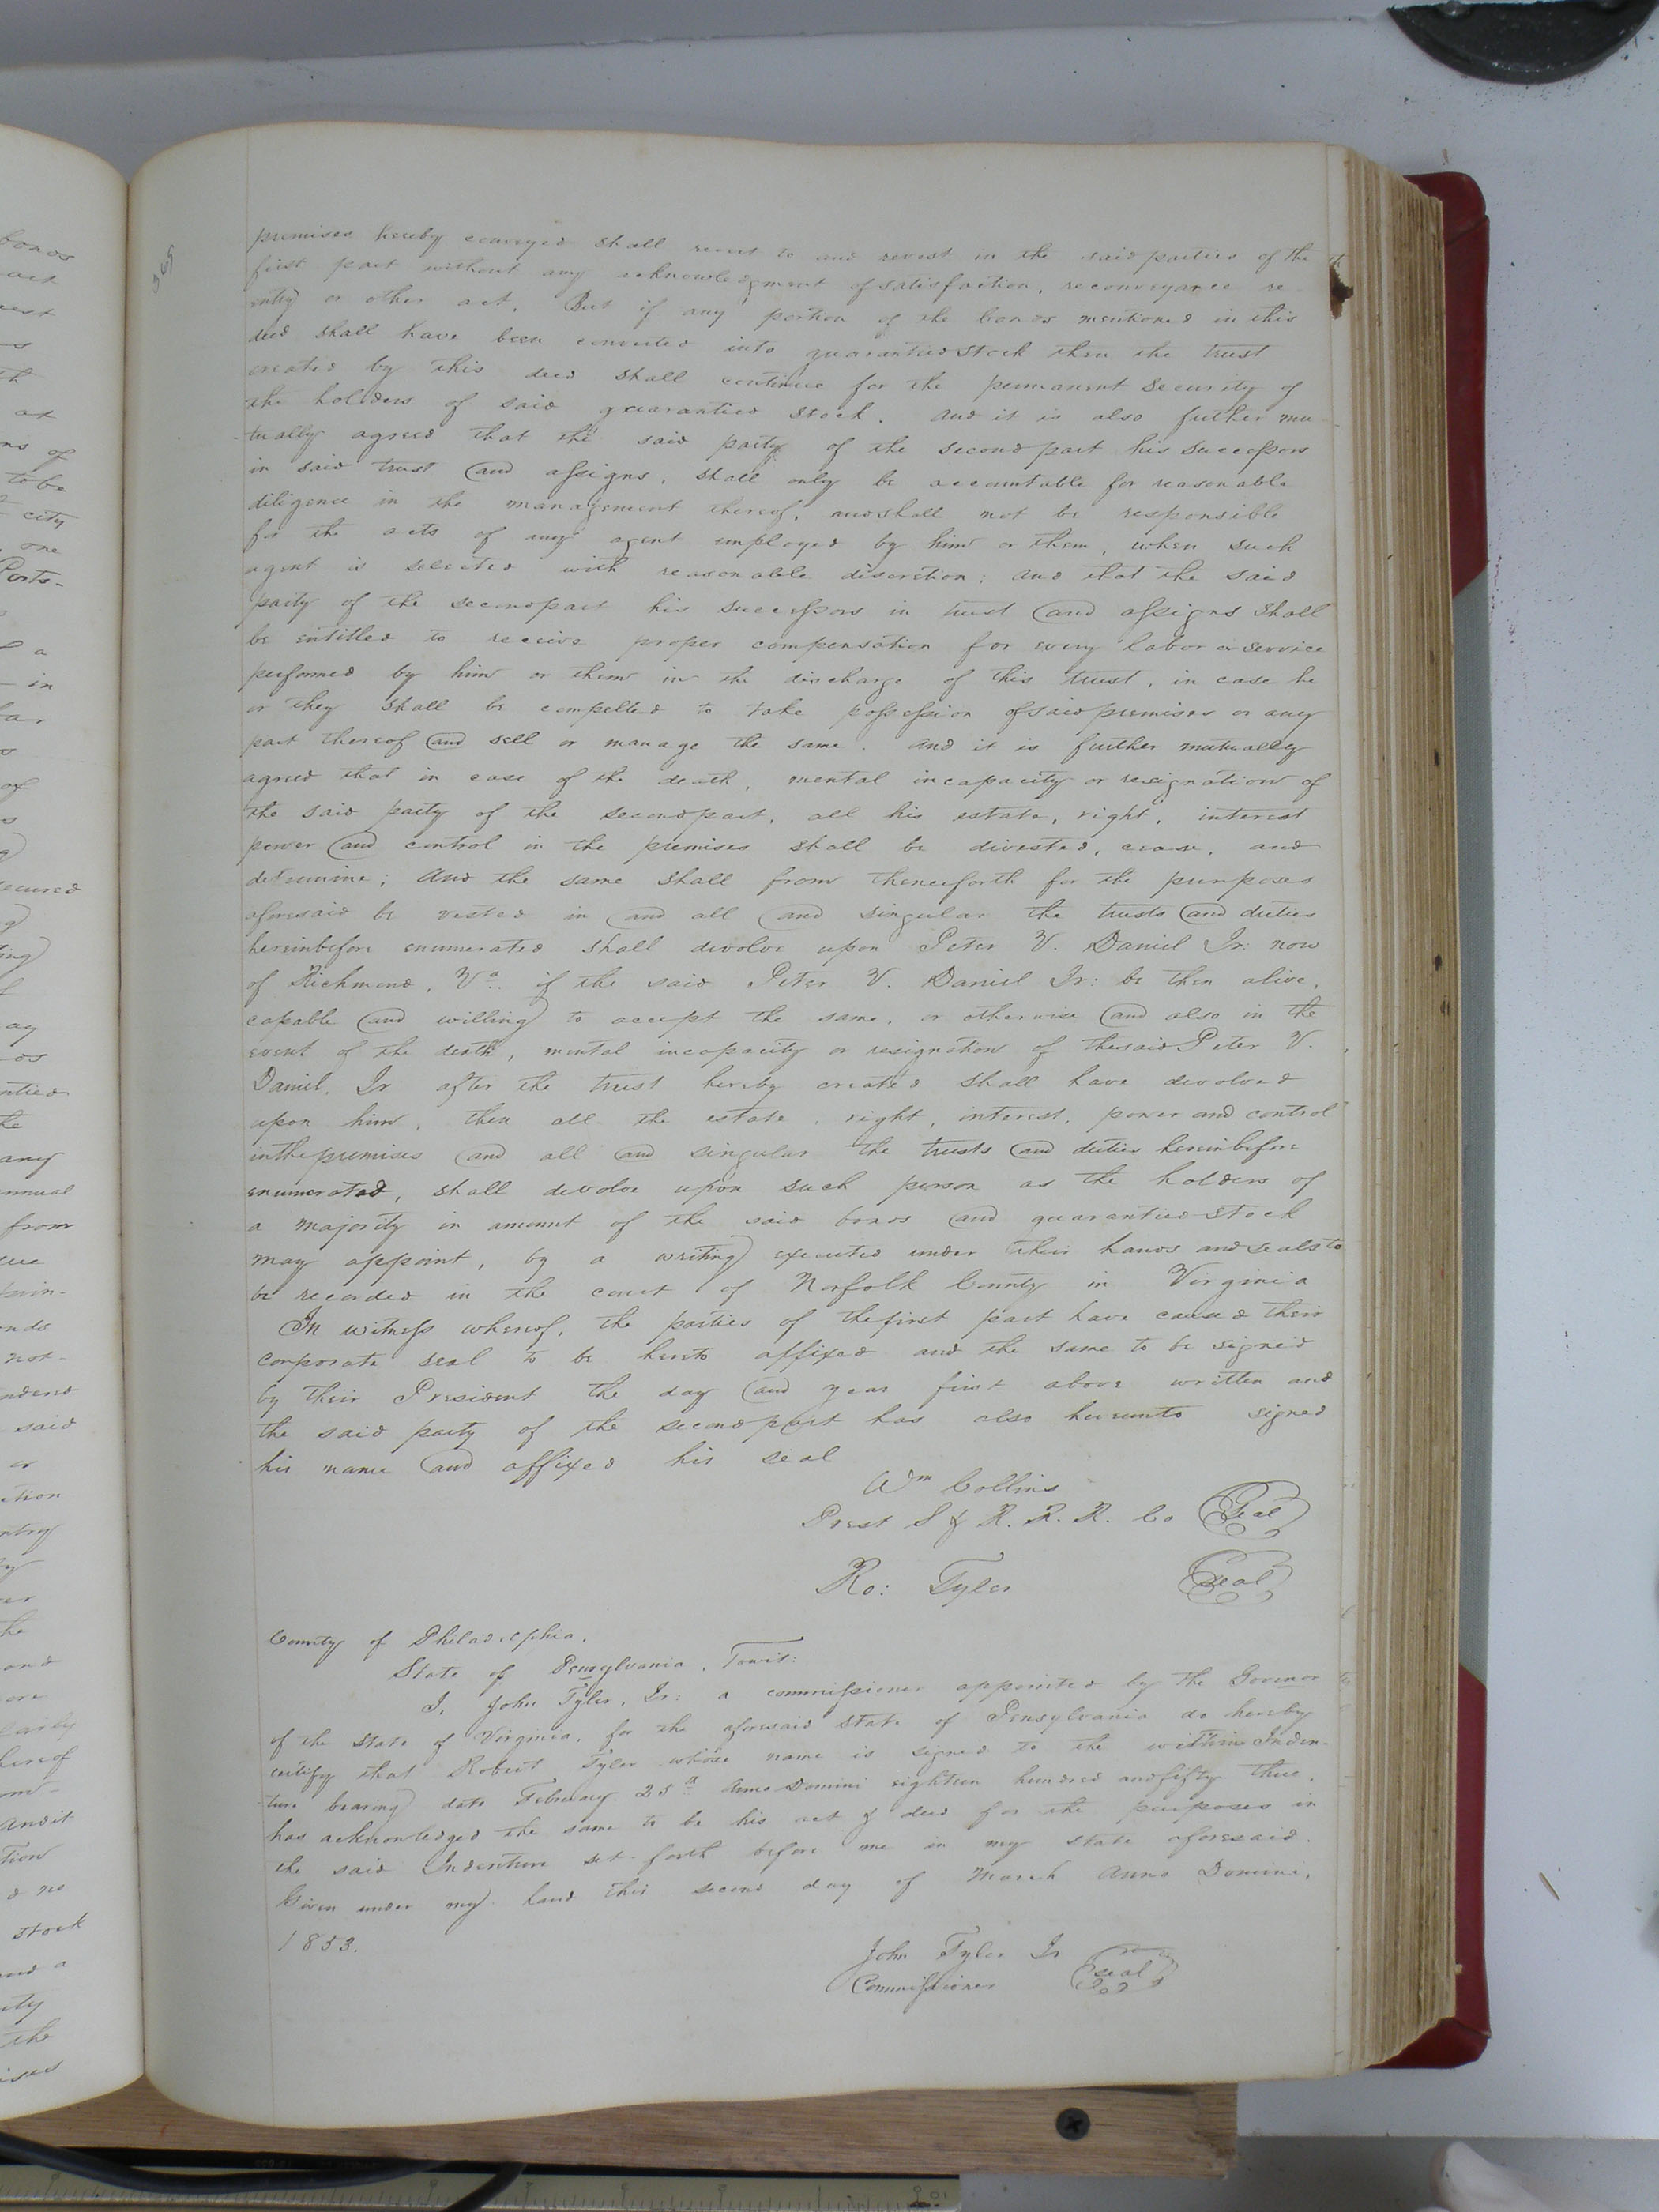 premises hereby conveyed shall revert to and revest in the said parties of the
first part without any acknowledgment of satisfaction, reconveyance re-
entry or other act. But if any portion of the bonds mentioned in this
deed shall have been converted into guarantied stock then the trust
created by this deed shall continue for the permanent security of
the holders of said guarantied stock. And it is also further mu-
tually agreed that the said party of the second part his successors
in said trust and assigns, shall only be accountable for reasonable
diligence in the management thereof, and shall not be responsible
for the acts of any agent employed by him or them, when such
agent is selected with reasonable discretion; and that the said
party of the second part his successors in trust and assigns shall
be entitled to receive proper compensation for every labor or service
performed by him or them in the discharge of this trust, in case he
or they shall be compelled to take possession of said premises or any
part thereof and sell or manage the same. And it is further mutually
agreed that in case of the death, mental incapacity or resignation of
the said party of the second part, all his estate, right, interest
power and control in the premises shall be divested, cease, and
determine; And the same shall from thenceforth for the purposes
aforesaid be vested in and all and singular the trusts and duties
hereinbefore enumerated shall devolve upon Peter V. Daniel Jr: now
of Richmond, Va. if the said Peter V. Daniel Jr: be then alive,
capable and willing to accept the same, or otherwise and also in the
event of the death, mental incapacity or resignation of the said Peter V.
Daniel, Jr after the trust hereby created shall have devolved
upon him, then all the estate, right, interest, power and control
in the premises and all and singular the trusts and duties hereinbefore
enumerated, shall devolve upon such person as the holders of
a majority in amount of the said bonds and guarantied stock
may appoint, by a writing executed under their hands and seals to
be recorded in the court of Norfolk County in Virginia
In witness whereof, the parties of the first part have caused their
corporate seal to be hereto affixed and the same to be signed
by their President the day and year first above written and
the said party of the second part has also hereunto signed
his name and affixed his seal
Wm Collins
Prest S & R. R. R. Co Seal
Ro: Tyler Seal
County of Philadelphia,
State of Pensylvania, Towit:
I, John Tyler, Jr: a commissioner appointed by the Govenor
of the State of Virginia, for the aforesaid State of Pensylvania do hereby
certify that Robert Tyler whose name is signed to the within Inden-
ture bearing date February 25th Anno Domini eighteen hundred and fifty three,
has acknowledged the same to be his act & deed for the purposes in
the said Indenture set forth before me in my state aforesaid.
Given under my hand this second day of March Anno Domini,
1853.
John Tyler Jr
Commissioner seal